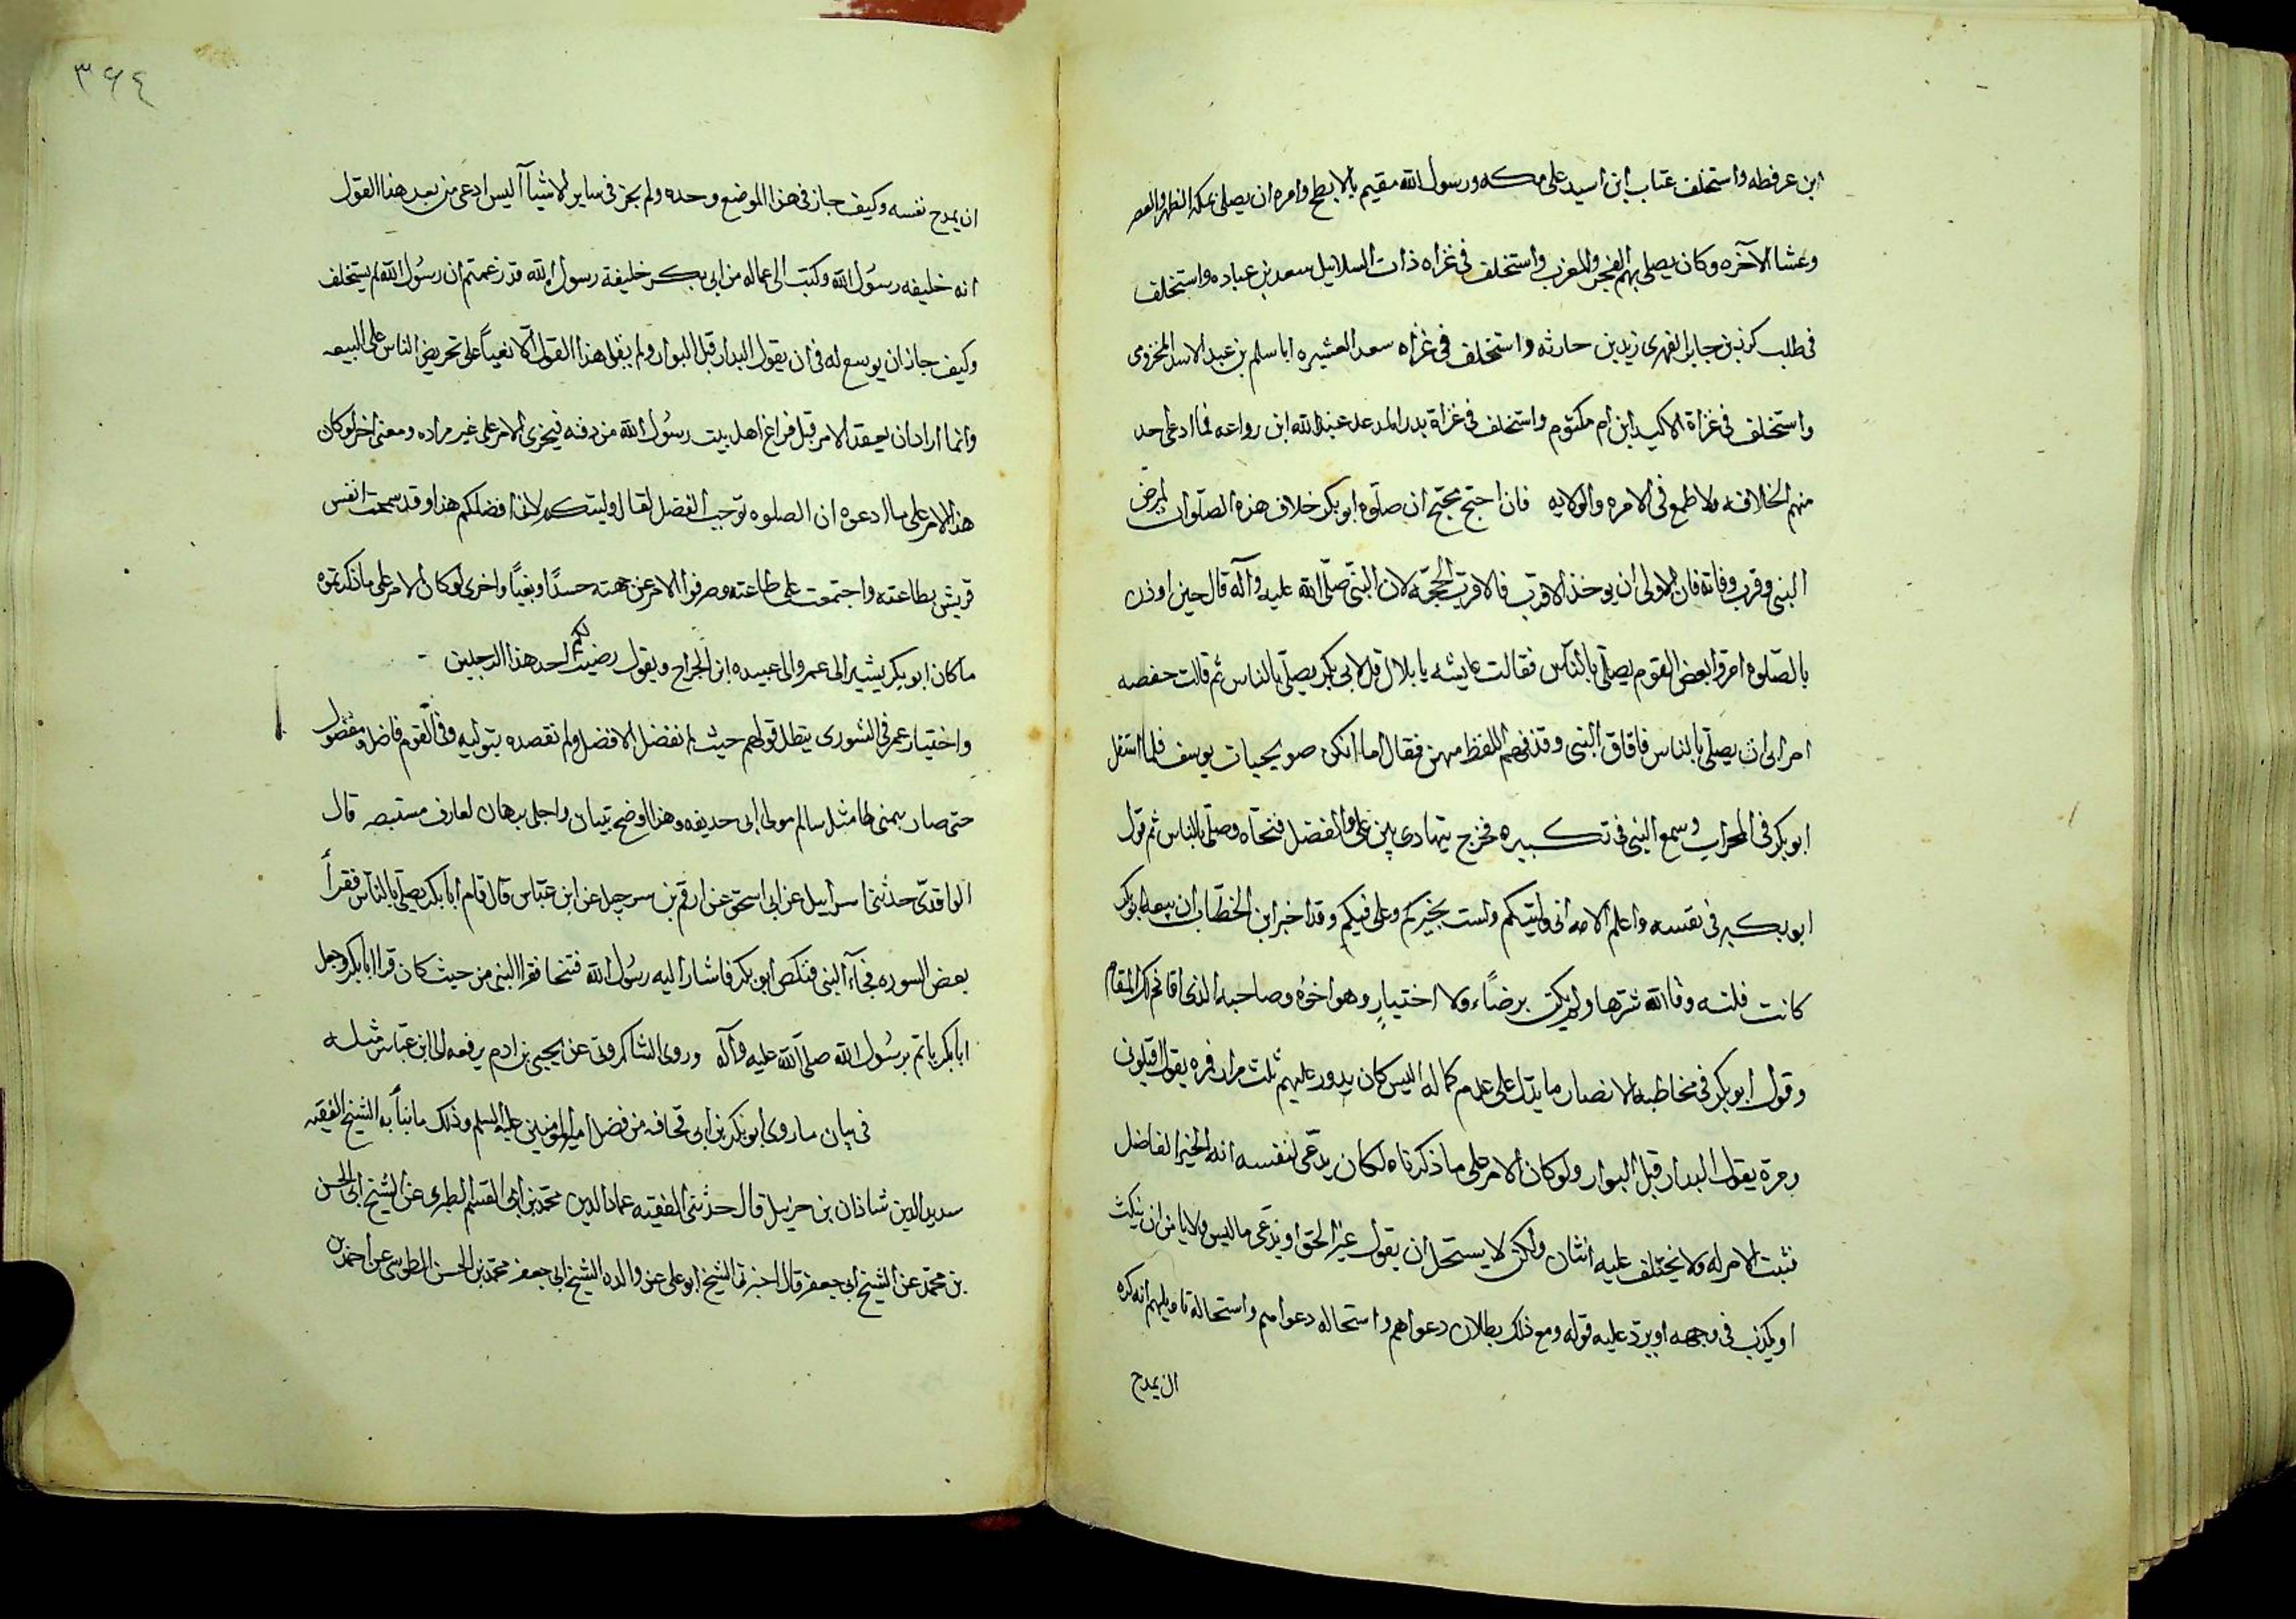 ابن عرفطه واستخلف عتاب ابن اسيد على مكه ورسول الله مقيم بالابطح وامره ان يصلى بمكه الظهر والعصر
وعشا الآخره وكان يصلى بهم الفجر والمغرب واستخلف فى غزاه ذات السلاسل سعد بن عباده واستخلف
فى طلب كرز بن جابر الفهرى زيد بن حارثه واستخلف فى غزاه سعد العشيره ابا سلم بن عبد الاسد المخزومى
واستخلف فى غزاة الاكيدر ابن ام مكتوم واستخلف فى غزاة بدر الموعد عبد الله ابن رواحه فما ادعى احد
منهم الخلافه ولا طمع فى الامره والولايه فان احتج محتج ان صلوة ابو بكر خلاف هذه الصلوات لمرض
النبى وقرب وفاته فان الاولى ان يوخذ الاقرب فالاقرب الحجة لان النبى صلى الله عليه وآله قال حين اوذن
بالصلوه امروا بعض القوم يصلى بالناس فقالت عايشه يا بلال قل لابى بكر يصلى بالناس ثم قالت حفصه
امر ابى ان يصلى بالناس فافاق النبى وقد فهم اللفظ منهن فقال اما انكن صويحبات يوسف فلما استقل
ابو بكر فى المحراب وسمع النبى فى تكبيره فخرج يتهادى بين على والفضل فنحاه وصلى بالناس ثم قول
ابو بكر فى نفسه واعلم الامه انى وليتكم ولست بخيركم وعلى فيكم وقد اخبر ابن الخطاب ان بيعه ابو بكر
كانت فلته وقا الله شرها ولم يكن برضاء ولا اختيار وهو اخوه وصاحبه الذى اقام ذلك المقام
وقول ابو بكر فى مخاطبه الانصار ما يدل على عدم كماله اليس كان يدور عليهم ثلث مرار فمره يقول اقيلونى
ومرة يقول البدار قبل البوار ولو كان الامر على ما ذكرناه لكان يدعى لنفسه انه الخير الفاضل
نثبت الامر له ولا يختلف عليه اثنان ولكن لا يستحل ان يقول غير الحق او يدعى ما ليس ولا يامن ان ينكث
او يكذب فى وجهه او يرد عليه قوله ومع ذلك بطلان دعواهم واستحاله دعوامهم واستحالة تاويلهم انه كره
ان يمدح
٣٦٤
ان يمدح نفسه وكيف جاز فى هذا الموضع وحده ولم يجز فى ساير الاشيآ أليس ادعى من بعد هذا القول
انه خليفه رسول الله وكتب الى عماله من ابى بكر خليفة رسول الله قد زعمتم ان رسول الله لم يستخلف
وكيف جاز ان يوسع له فى ان يقول البدار قبل البوار ولم يقل هذا القول الا بغياً على تحريض الناس على البيعه
وانما اراد ان يعقد الامر قبل فراغ اهل بيت رسول الله من دفنه فيجزى الامر على غير مراده ومعنى اخر لو كان
هذا الامر على ما ادعوه ان الصلوه توجب الفضل لقال وليتكم لانى افضلكم هذا وقد سمحت انفس
قريش بطاعته واجتمعت على طاعته وصرفوا الامر عن جهته حسدًا وبغيًا واخرى لو كان الامر على ما ذكرتموه
ما كان ابو بكر يشير الى عمر والى عبيده ابن الجراح ويقول رضيت لكم احد هذا الرجلين
واختيار عمر فى الشورى يبطل قولهم حيث لم نفضل الافضل ولم نقصده بتوليه وفى القوم فاضل ومفضول
حتى صار يمنى لها مثل سالم مولى ابى حديفه وهذا اوضح بتيان واجلى برهان لعارف مستبصر قال
الواقدى حدثنى اسراييل عن ابى اسحق عن ارقم بن سرجيل عن ابن عباس قال قام ابا بكر يصلى بالناس فقرأ
بعض السوره فجآء النبى فنكص ابو بكر فاشار اليه رسول الله فتنحا فقرا النبى من حيث كان قرا ابا بكر وجعل
ابا بكر ياتم برسول الله صلى الله عليه وآله وروى الشاكرونى عن يحيى بن ادم يرفعه الى ابن عباس مثله
فى بيان ما روى ابو بكر بن ابى قحافه من فضل امير المومنين عليه السلم وذلك ما نبأ به الشيخ الفقيه
سديد الدين شاذان بن جبريل قال حدثنى الفقيه عماد الدين محمد بن ابى القسم الطبرى عن الشيخ ابى الحسن
بن محمد عن الشيخ ابى جعفر قال اخبرنا الشيخ ابو على عن والده الشيخ ابى جعفر محمد بن الحسن الطوسى عن احمد بن